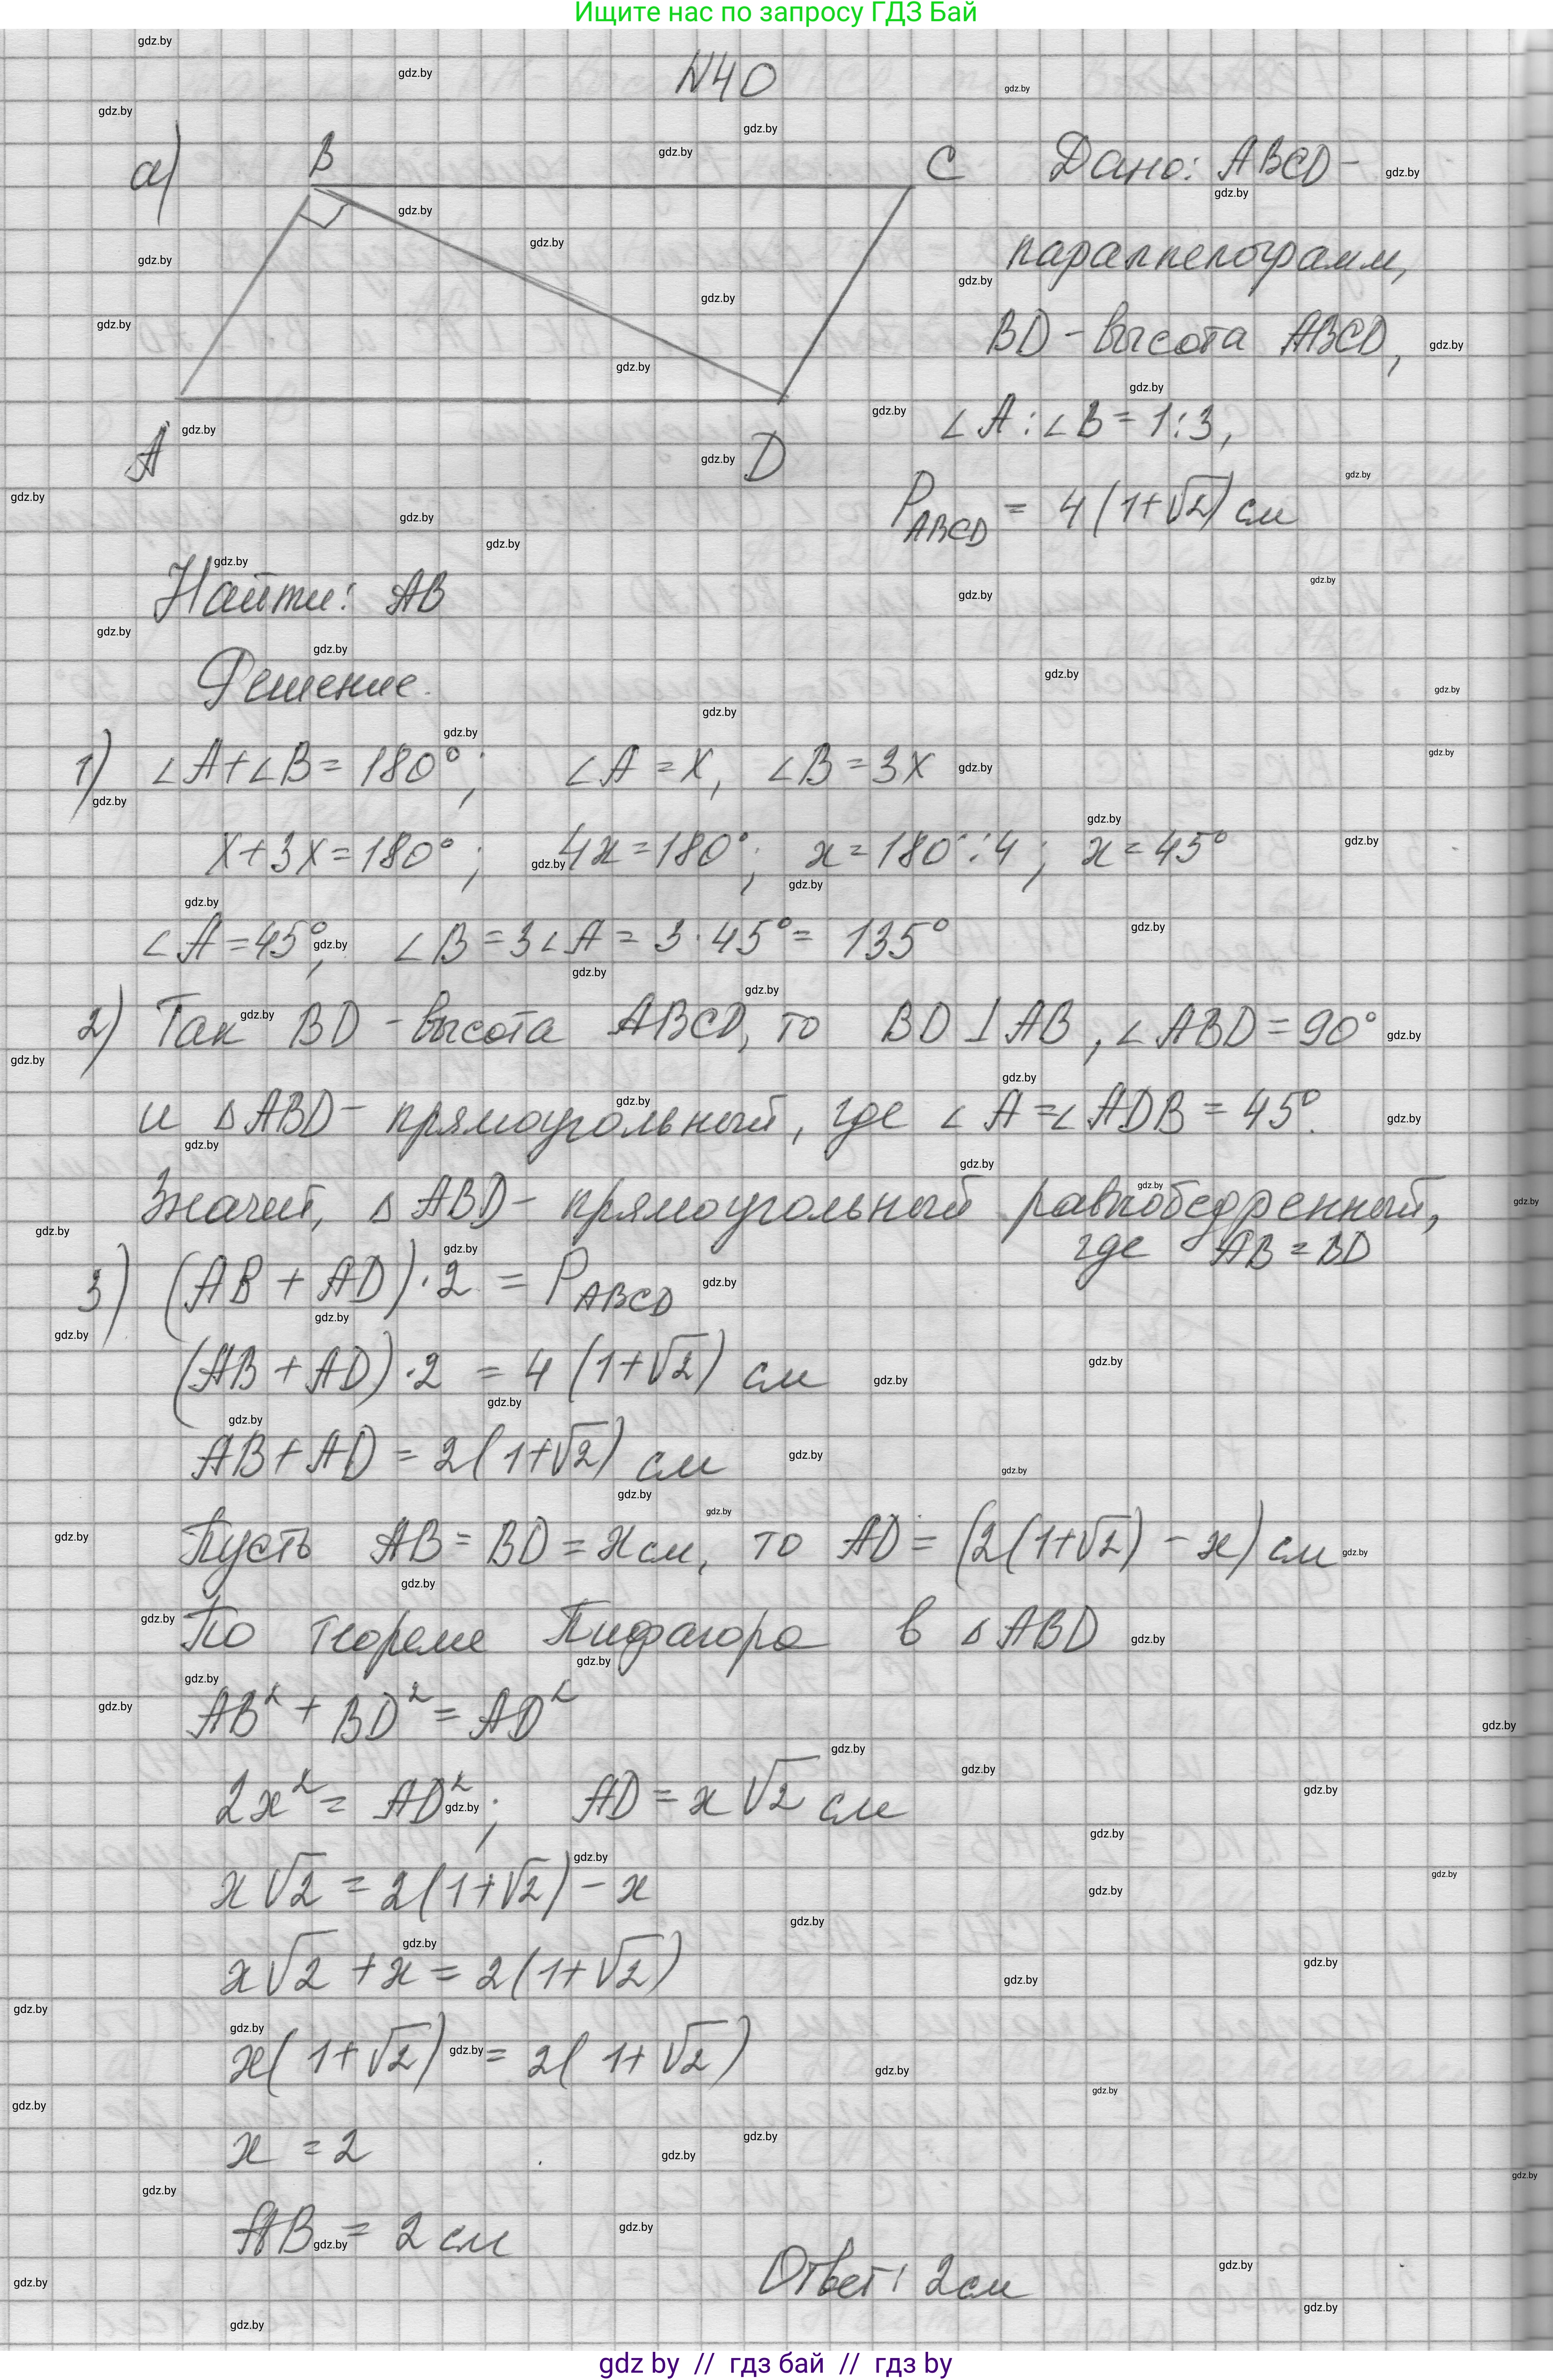 Ищите нас по запросу ГДЗ Бай
N40
а) B C Дано: ABCD -
параллелограмм,
BD - высота ABCD,
∠A : ∠B = 1:3,
A D
P_ABCD = 4(1+√2) см
Найти: AB
Решение.
1) ∠A+∠B = 180°; ∠A = x, ∠B = 3x
x+3x=180°; 4x=180°; x=180°:4; x=45°
∠A=45°, ∠B=3∠A = 3·45° = 135°
2) Так BD - высота ABCD, то BD ⊥ AB, ∠ABD = 90°
и △ABD - прямоугольный, где ∠A = ∠ADB = 45°.
Значит, △ABD - прямоугольный равнобедренный,
где AB = BD
3) (AB + AD)·2 = P_ABCD
(AB + AD)·2 = 4(1+√2) см
AB + AD = 2(1+√2) см
Пусть AB = BD = x см, то AD = (2(1+√2) - x) см
По теореме Пифагора в △ABD
AB² + BD² = AD²
2x² = AD²; AD = x√2 см
x√2 = 2(1+√2) - x
x√2 + x = 2(1+√2)
x(1+√2) = 2(1+√2)
x = 2
AB = 2 см
Ответ: 2см
gdz by // гдз бай // гдз by